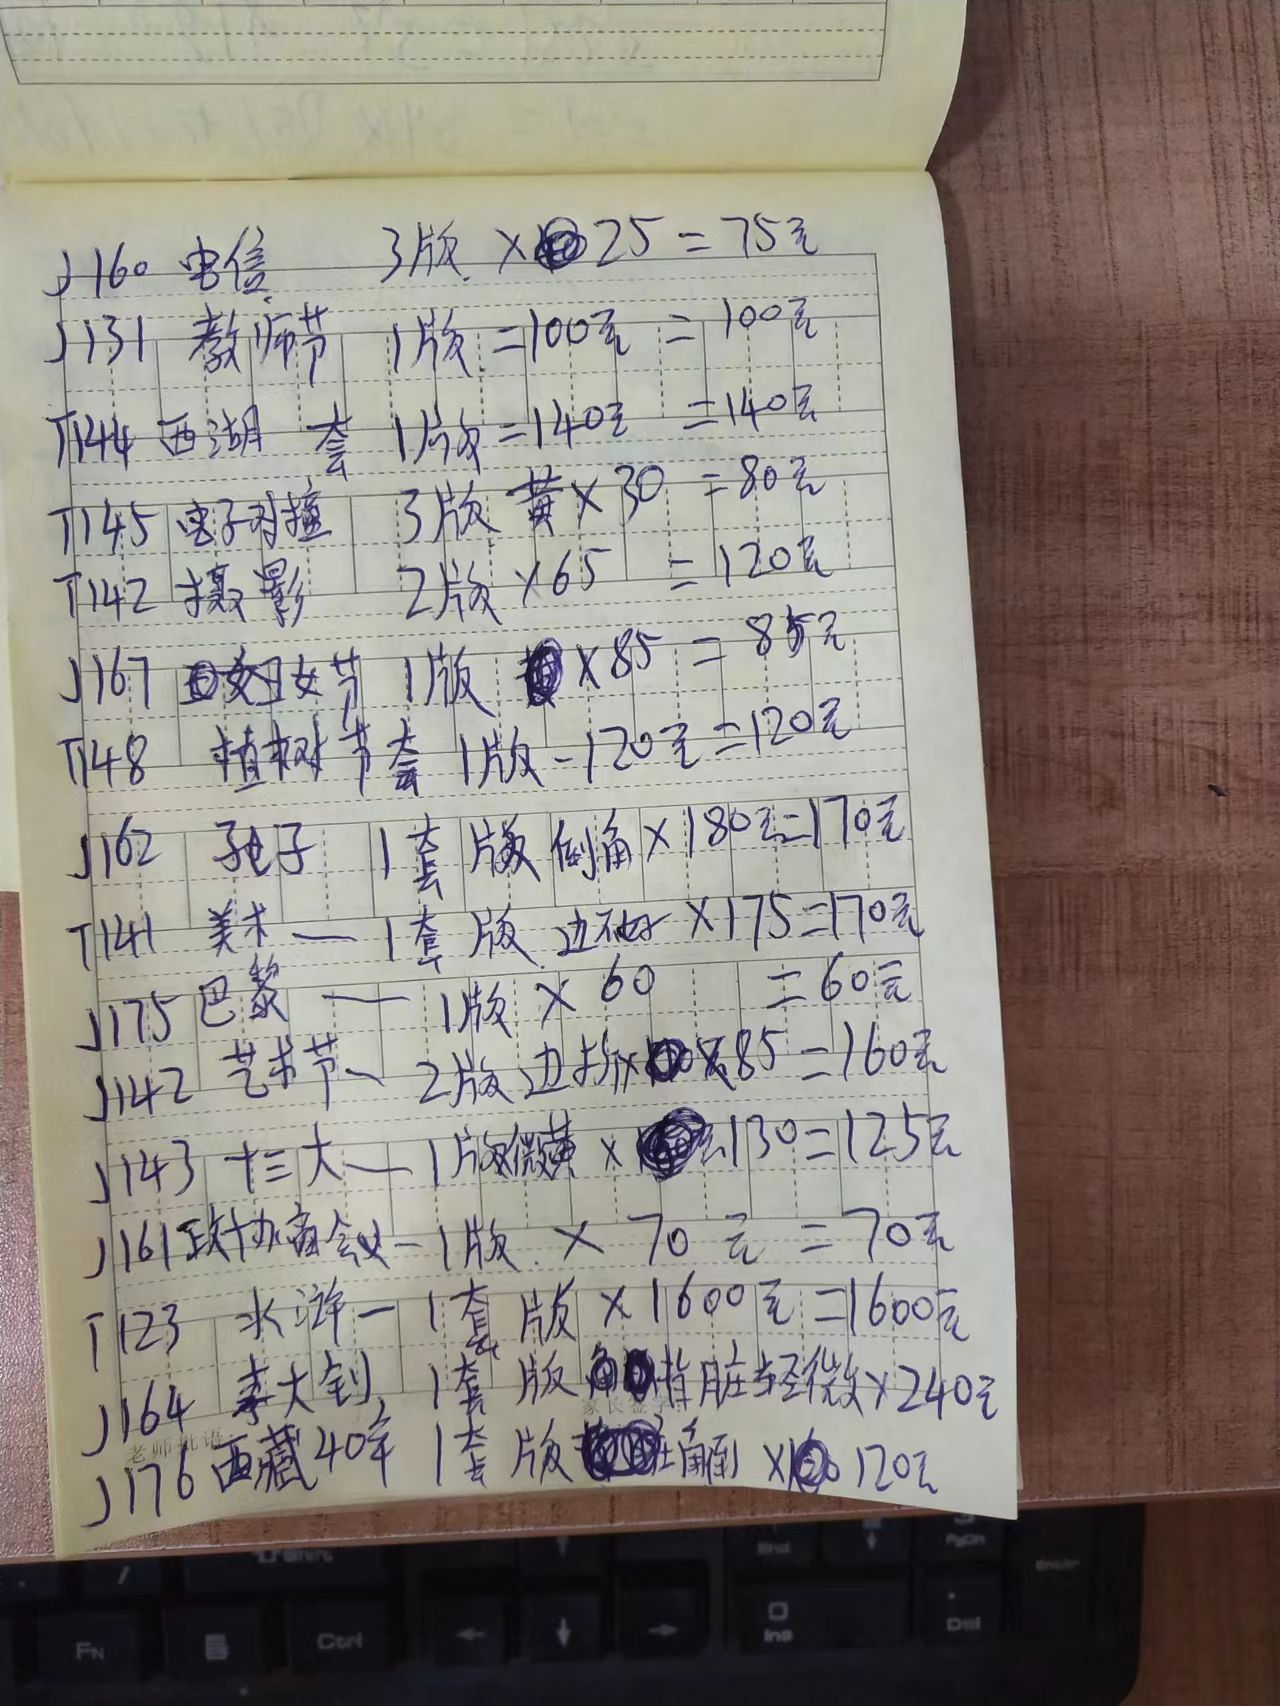 J160 电信 3版 × 25 = 75元
J131 教师节 1版 = 100元 = 100元
T144 西湖 套 1版 = 140元 = 140元
T145 电子对撞 3版 黄 × 30 = 80元
T142 摄影 2版 × 65 = 120元
J167 妇女节 1版 × 85 = 85元
T148 植树节套 1版 - 120元 = 120元
J162 孔子 1套 版 倒角 × 180元 = 170元
T141 美术 — 1套 版 边不好 × 175 = 170元
J175 巴黎 — 1版 × 60 = 60元
J142 艺术节 — 2版 边折 × 85 = 160元
J143 十三大 — 1版微黄 × 130 = 125元
J161 政协商会议 - 1版 × 70元 = 70元
T123 水浒 - 1套 版 × 1600元 = 1600元
J164 李大钊 1套 版 背脏轻微 × 240元
家长签字
老师批语
J176 西藏40年 1套 版 角倒 × 120元
Shift
End
PgDn
Enter
FN
Ctrl
Ins
Del